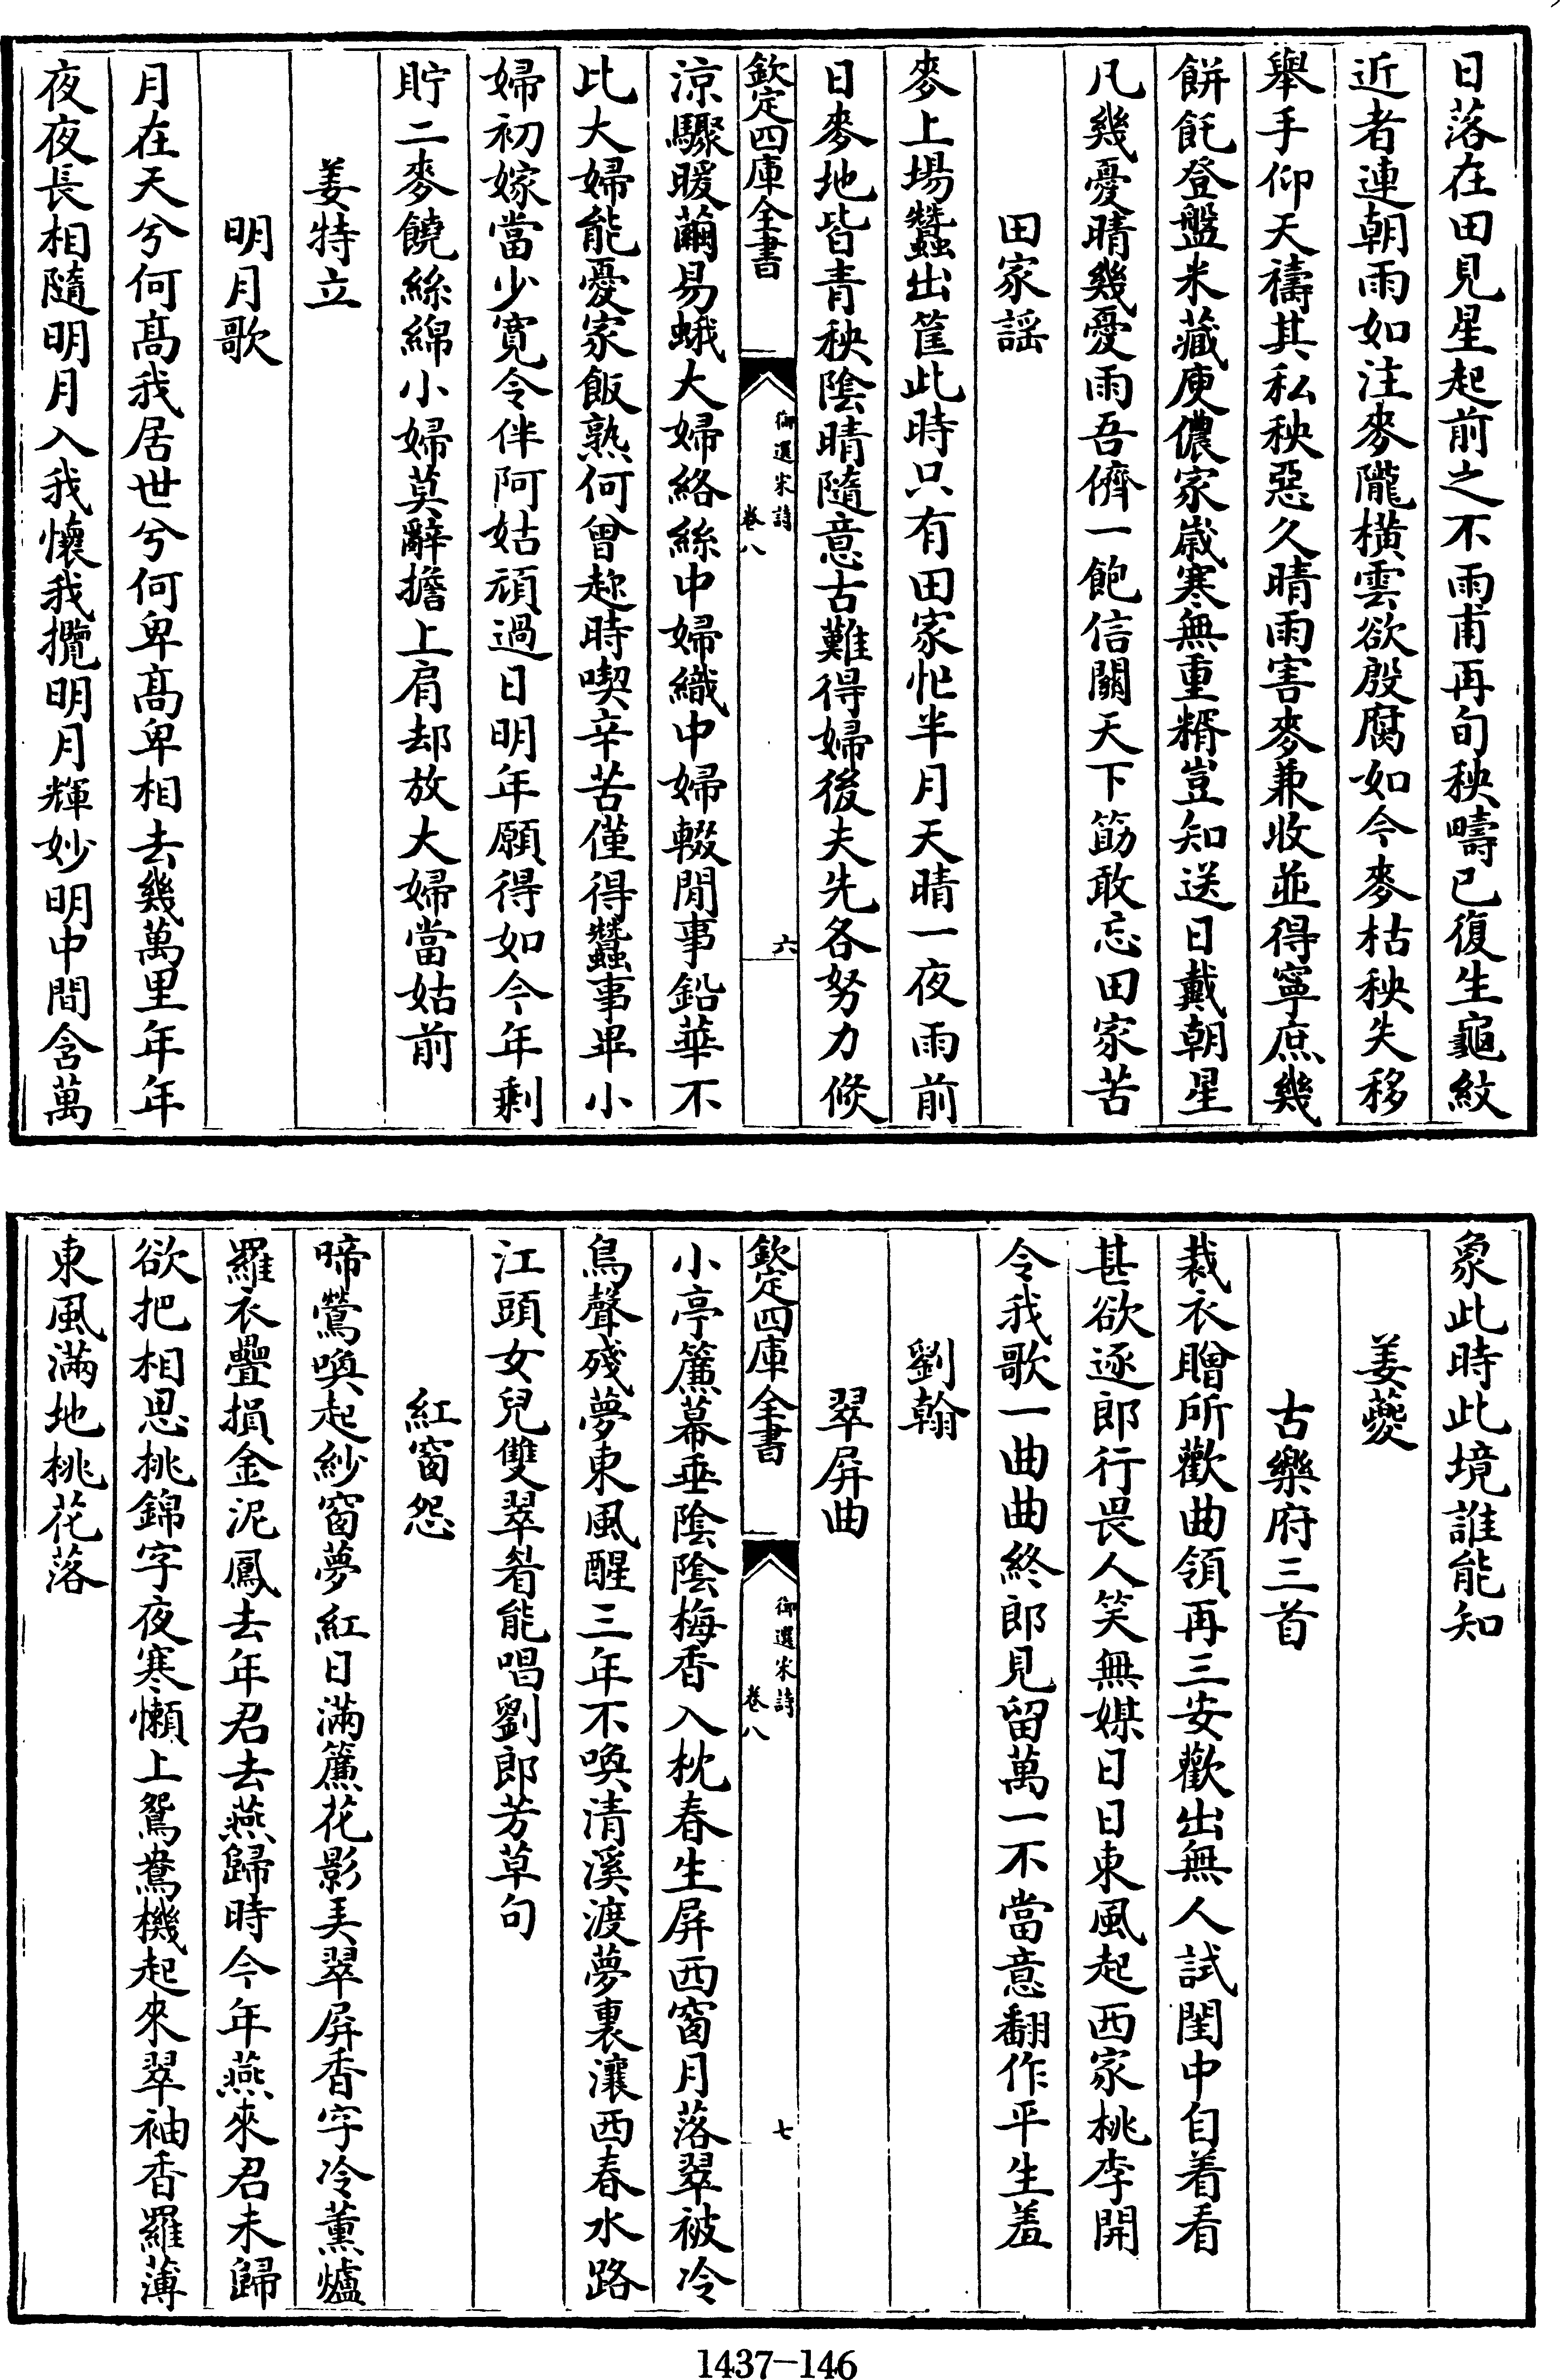 日落在田見星起前之不雨甫再旬秧疇已復生龜紋
近者連朝雨如注麥隴橫雲欲殷腐如今麥枯秧失移
舉手仰天禱其私秧惡久晴雨害麥兼收並得寧庶幾
餅飥登盤米藏庾儂家嵗寒無重糈豈知送日戴朝星
凡幾憂晴幾憂雨吾儕一飽信關天下筯敢忘田家苦
田家謡
麥上場蠶出筐此時只有田家忙半月天晴一夜雨前
日麥地皆青秧陰晴隨意古難得婦後夫先各努力倐
欽定四庫全書
御選宋詩
卷八
六
涼驟暖繭易蛾大婦絡絲中婦織中婦輟閒事鉛華不
比大婦能憂家飯熟何曾趂時喫辛苦僅得蠶事畢小
婦初嫁當少寛令伴阿姑頑過日明年願得如今年剩
貯二麥饒絲綿小婦莫辭擔上肩却放大婦當姑前
姜特立
明月歌
月在天兮何髙我居世兮何卑髙卑相去幾萬里年年
夜夜長相隨明月入我懐我攬明月輝妙明中間含萬
象此時此境誰能知
姜夔
古樂府三首
裁衣贈所歡曲領再三安歡出無人試閨中自着看
甚欲逐郎行畏人笑無媒日日東風起西家桃李開
令我歌一曲曲終郎見留萬一不當意翻作平生羞
劉翰
翠屏曲
欽定四庫全書
御選宋詩
卷八
七
小亭簾幕垂陰陰梅香入枕春生屏西窗月落翠被冷
鳥聲殘夢東風醒三年不喚清溪渡夢裏瀼西春水路
江頭女兒雙翠眉能唱劉郎芳草句
紅窗怨
啼鶯喚起紗窗夢紅日滿簾花影美翠屏香字冷薫爐
羅衣疊損金泥鳳去年君去燕歸時今年燕來君未歸
欲把相思挑錦字夜寒懶上鴛鴦機起來翠袖香羅薄
東風滿地桃花落
1437—146